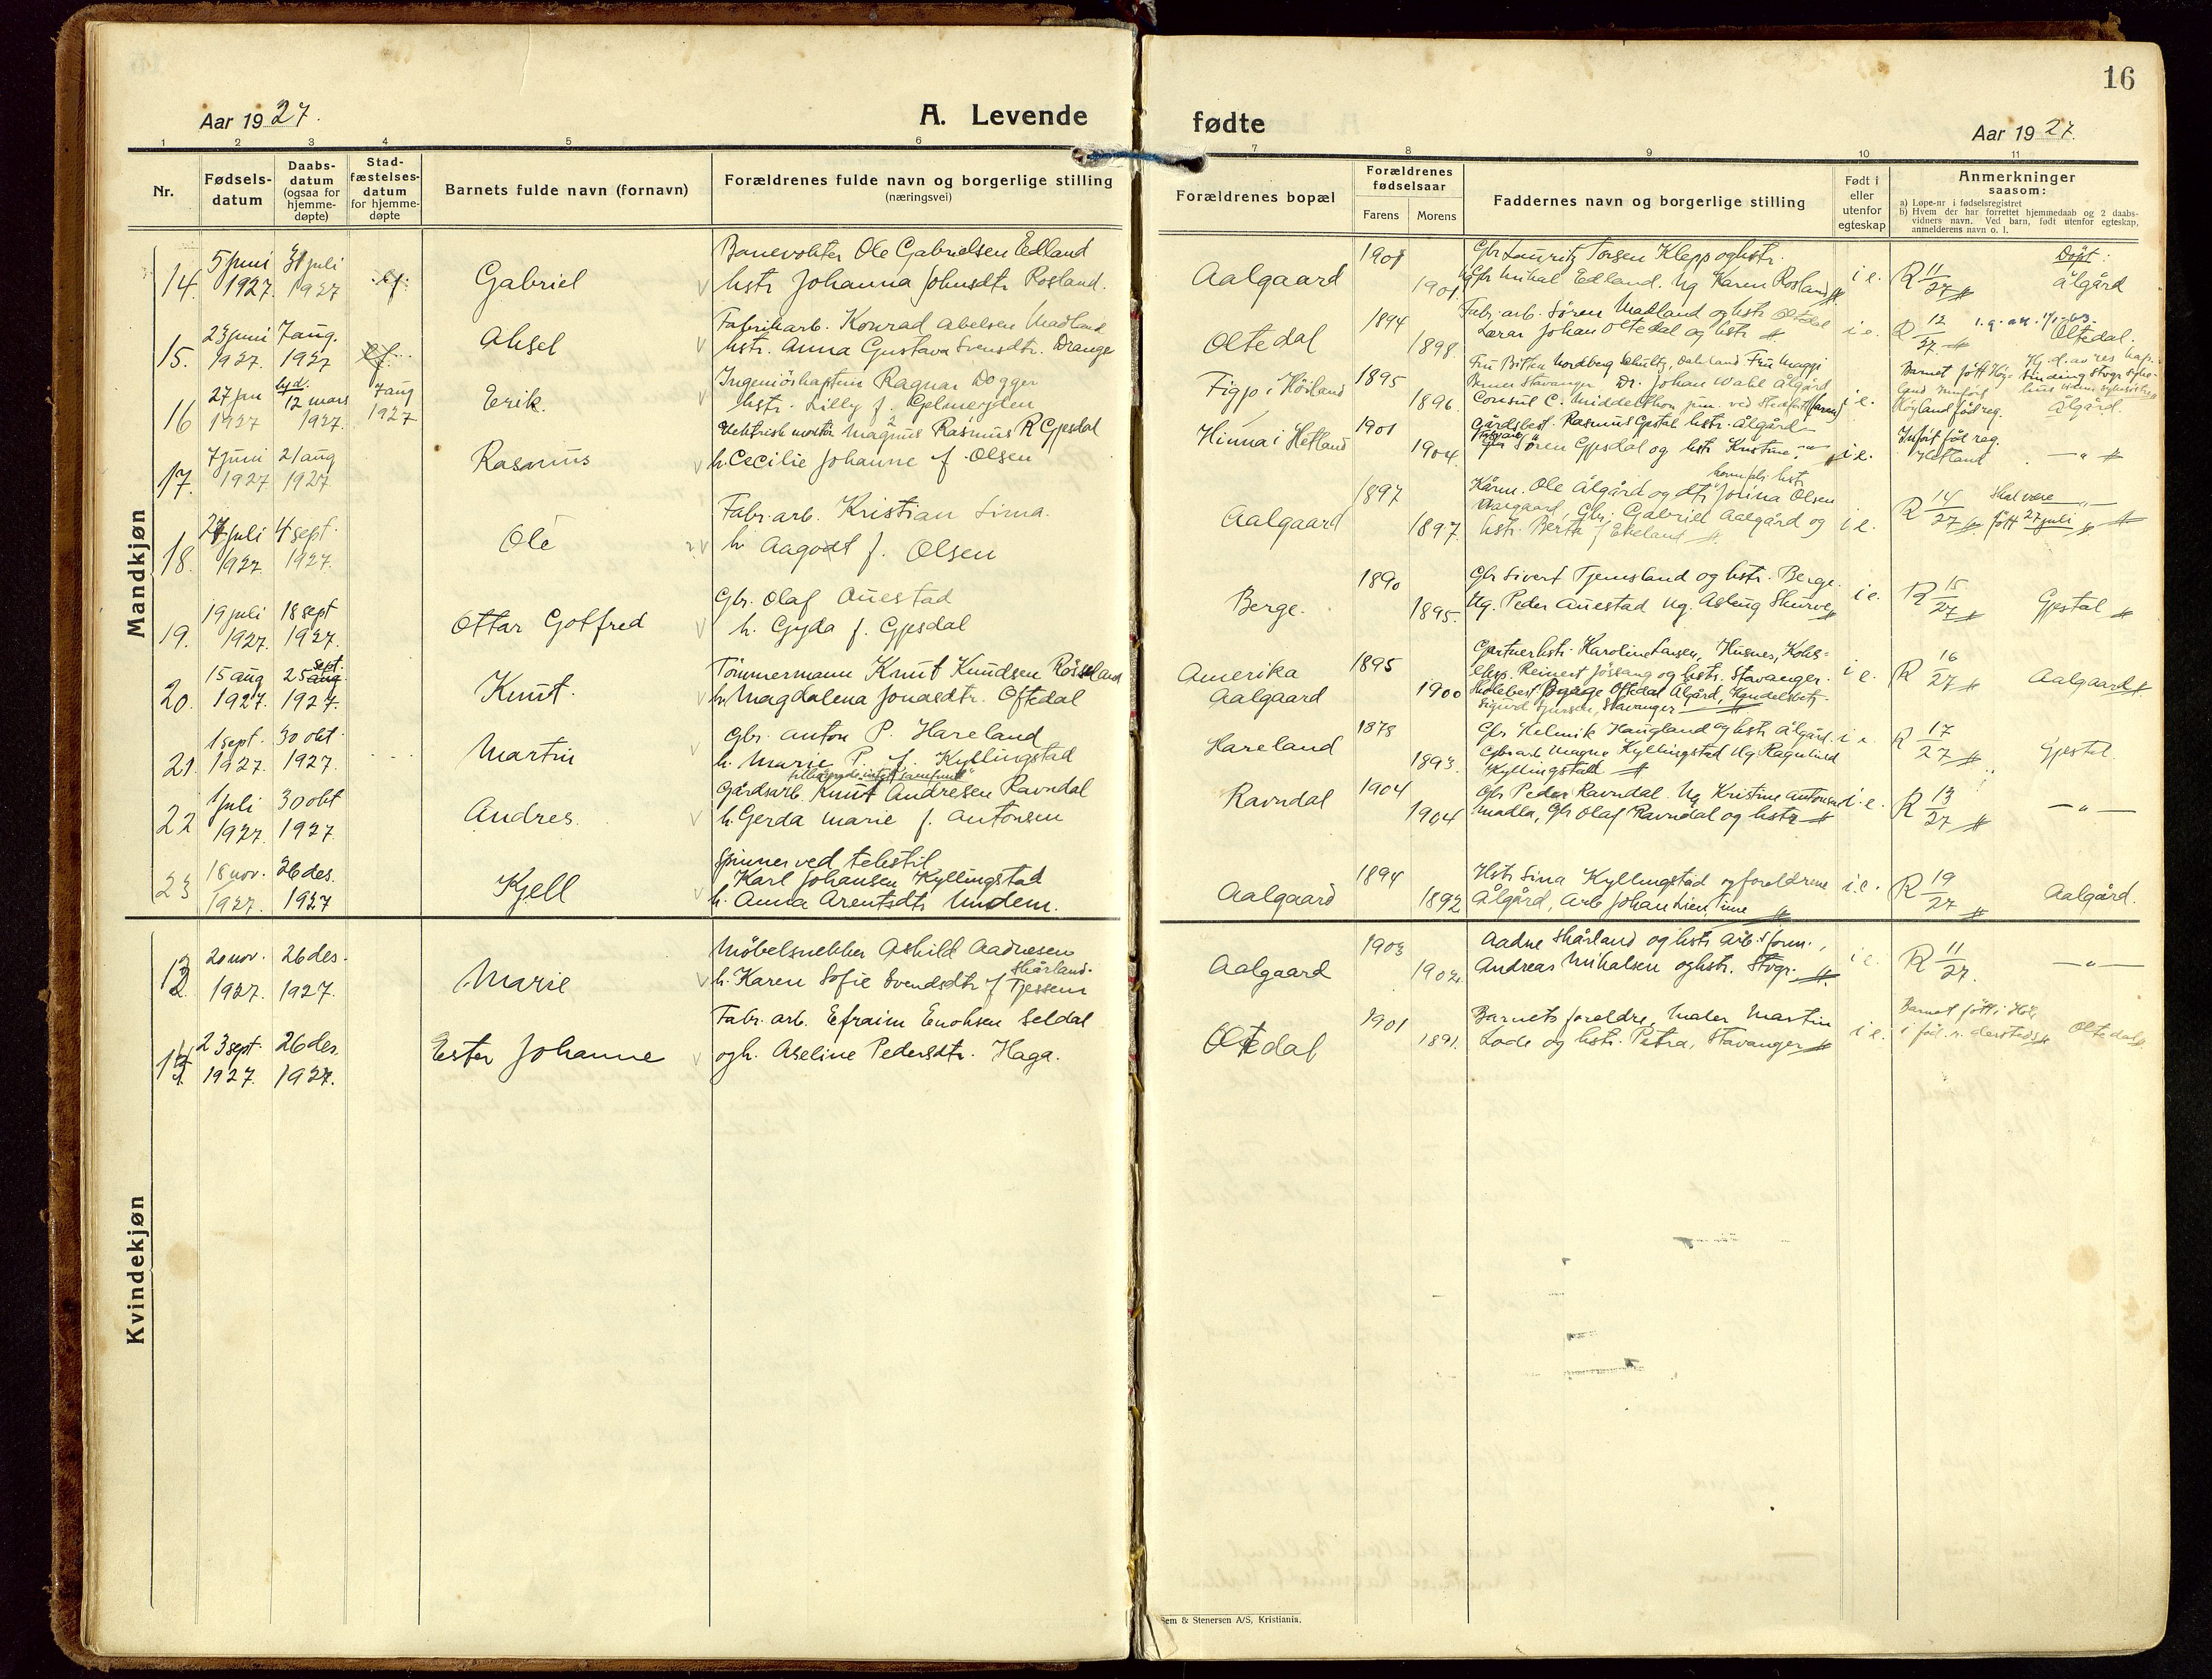 16
Aar 1927.
A. Levende
fødte
Aar 1927.
1 2 3 4 5 6 7 8 9 10 11
Nr.
Fødsels-
datum
Daabs-
datum
(ogsaa for
hjemme-
døpte)
Stad-
fæstelses-
datum
for hjemme-
døpte
Barnets fulde navn (fornavn)
Forældrenes fulde navn og borgerlige stilling
(næringsvei)
Forældrenes bopæl
Forældrenes
fødselsaar
Farens Morens
Faddernes navn og borgerlige stilling
Født i
eller
utenfor
egteskap
Anmerkninger
saasom:
a) Løpe-nr i fødselsregistret
b) Hvem der har forrettet hjemmedaab og 2 daabs-
vidners navn. Ved barn, født utenfor egteskap,
anmelderens navn o. l.
Mandkjøn
14. 5 juni 1927. 31 juli 1927
Gabriel
Banevokter Ole Gabrielsen Edland
hstr Johanna Johnsdtr Rosland.
Aalgaard
1901 1901
Gbr Lauritz Torsen Klepp og hstr.
Gbr Mikal Edland. Ug Karen Rosland
i e.
R 11/27
Døpt:
Ålgård
15. 23 juni 1927. 7 aug. 1927
Aksel
Fabrikarb. Konrad Abelsen Madland
hstr. Anna Gustava Svensdtr. Drange
Oltedal
1894 1898.
Fabr. arb. Søren Madland og hstr Oltedal
Lærer Johan Oltedal og hstr
i e.
12/27
Oltedal.
16 27 jan 1927 12 mars 1927. 7 aug 1927
Erik.
Ingeniørkaptein Ragnar Dogger
hstr. Lilly f. Gelmeyden
Figgjo i Høiland
1895 1896.
Fru Bitten Nordberg Schultz, Fru Maggi
Stavanger Dr. Johan Wahl Ålgård
Consul C. Middelthon jun.
i e.
Barnet født
Høyland fød reg.
Ålgård.
17. 7 juni 1927 21 aug 1927
Rasmus
Elektrisk montør Magnus Rasmus R Gjesdal
h. Cecilie Johanne f. Olsen
Hinna i Hetland
1901 1904.
Gårdsbest. Rasmus Gjestal hstr. Ålgård
Søren Gjesdal og hstr Kristine, –"–
i e.
Innf i fød. reg.
Hetland
–"–
18. 27 juli 1927. 4 sept. 1927.
Ole
Fabr. arb. Kristian Lima.
h Aagodt f. Olsen
Aalgaard
1897 1897.
Kårm. Ole Ålgård og dtr Jorina Olsen
Aalgaard, Gbr. Gabriel Aalgård og
hstr. Berta f Ekeland
i e.
R 14/27
Skal være
født 27 juli
–"–
19. 19 juli 1927. 18 sept 1927.
Ottar Gotfred
Gbr. Olaf Auestad
h. Gyda f. Gjesdal
Berge.
1890 1895.
Gbr Sivert Tjemsland og hstr. Berge.
Ug. Peder Auestad Ug. Aslaug Skurve
i e.
R 15/27
Gjestal
20. 15 aug 1927. 25 sept. 1927.
Knut.
Tømmermann Knut Knudsen Røssland
h. Magdalena Jonasdtr. Oftedal
Amerika
Aalgaard
1895 1900
Gartnerhstr. Karoline Larsen, Husnes,
Reinert Jøssang og hstr. Stavanger.
Oftedal Ålgård,
Sigurd Stavanger
i e.
R 16/27
Aalgaard
21. 1 sept. 1927. 30 okt 1927.
Martin
Gbr. Anton P. Hareland
h. Marie P. f. Kyllingstad
Hareland
1878 1893.
Gbr Helmik Haugland og hstr Ålgård.
Gbrarb Magne Kyllingstad Ug. Ragnhild
Kyllingstad
i e.
R 17/27
Gjestal.
22 1 juli 1927. 30 okt 1927.
Andres.
Gårdsarb. Knut Andresen Ravndal
h. Gerda Marie f. Antonsen
Ravndal
1904 1904
Gbr Peder Ravndal. Ug Kristine Antonsen
Madla, Gbr Olaf Ravndal og hstr
i. e.
R 13/27
–"–
23 18 nov. 1927. 26 des. 1927
Kjell
Spinner ved tekstil
Karl Johansen Kyllingstad
h. Anna Arentsdtr Undem.
Aalgaard
1894 1892
Hstr Sina Kyllingstad og foreldrene
Ålgård, Arb Johan Lien, Time
i. e.
R 19/27
Aalgård.
Kvindekjøn
20 nov. 1927. 26 des. 1927.
Marie
Møbelsnekker Askild Aadnesen
Skårland.
h. Karen Sofie Svendsdtr f Tjessem
Aalgaard
1903 1902.
Aadne Skårland og hstr Arb.sform.,
Andreas Mikalsen og hstr. Stvgr.
i e.
R 11/27.
–"–
23 sept. 1927. 26 des. 1927.
Ester Johanne
Fabr. arb. Efraim Enoksen Seldal
og h. Aseline Pedersdtr. Haga.
Oltedal
1901 1891.
Barnets foreldre, Maler Martin
Lode og hstr. Petra, Stavanger
i e.
Barnet født i
i fød. r. dersteds
Oltedal
Sem & Stenersen A/S, Kristiania.